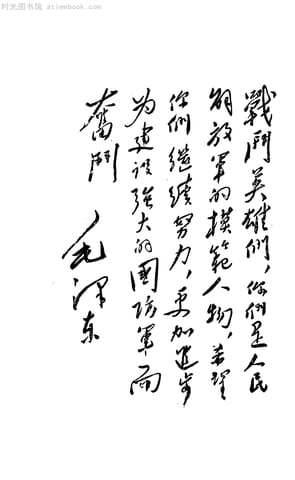 时光图书馆 atimebook.com
戰鬥英雄們，你們是人民
解放軍的模範人物，希望
你們繼續努力，更加進步
为建设强大的國防軍而
奮鬥
毛泽东